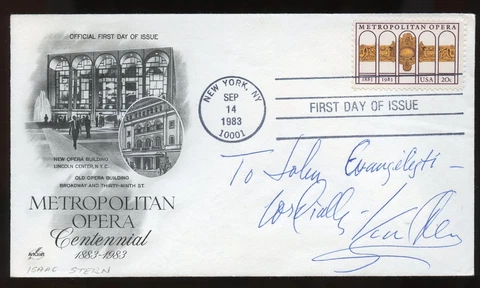 OFFICIAL FIRST DAY OF ISSUE
NEW OPERA BUILDING
LINCOLN CENTER, N.Y.C.
OLD OPERA BUILDING
BROADWAY AND THIRTY-NINTH ST.
METROPOLITAN
OPERA
Centennial
1883-1983
ArtCraft
ISAAC STERN
NEW YORK, NY
SEP
14
1983
10001
METROPOLITAN OPERA
1883 1983 USA 20c
FIRST DAY OF ISSUE
To John Evangelisti -
Cordially -